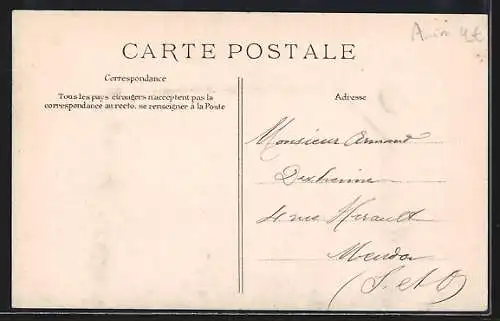 CARTE POSTALE
Correspondance
Tous les pays étrangers n'acceptent pas la
correspondance au recto, se renseigner à la Poste
Adresse
Monsieur Armand
4 rue Herault
Meudon
(S. et O)